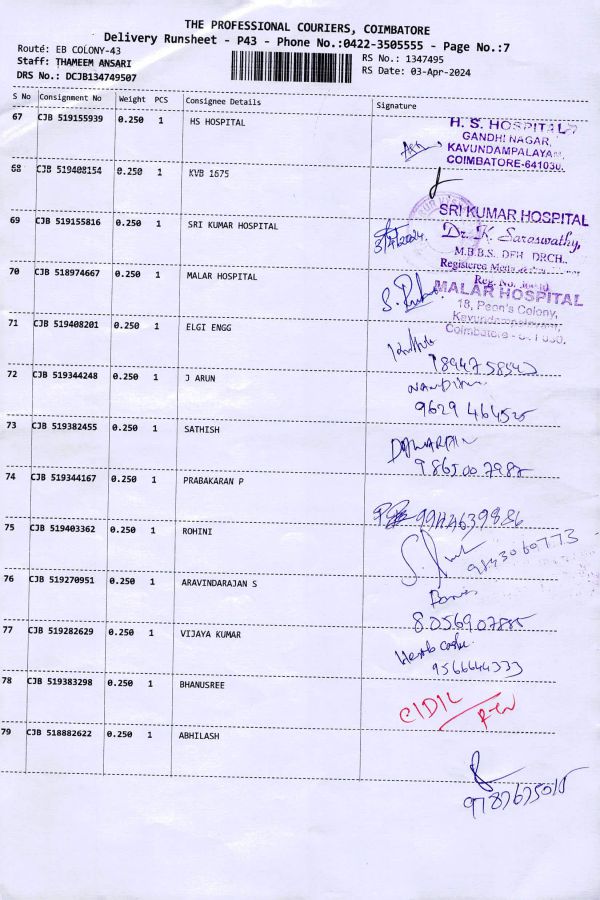 THE PROFESSIONAL COURIERS, COIMBATORE
Delivery Runsheet - P43 - Phone No.:0422-3505555 - Page No.:7
Route: EB COLONY-43
Staff: THAMEEM ANSARI
DRS No.: DCJB134749507
RS No.: 1347495
RS Date: 03-Apr-2024
S No Consignment No Weight PCS Consignee Details Signature
67 CJB 519155939 0.250 1 HS HOSPITAL
H. S. HOSPITAL
GANDHI NAGAR,
KAVUNDAMPALAYAM,
COIMBATORE-641030.
68 CJB 519408154 0.250 1 KVB 1675
69 CJB 519155816 0.250 1 SRI KUMAR HOSPITAL
SRI KUMAR HOSPITAL
Dr. K. Saraswathy,
M.B.B.S. DFH DRCH.
Registered
Reg. No.
3/4/2024.
70 CJB 518974667 0.250 1 MALAR HOSPITAL
MALAR HOSPITAL
18, Peon's Colony,
Kavundampalayam,
Coimbatore -
71 CJB 519408201 0.250 1 ELGI ENGG
72 CJB 519344248 0.250 1 J ARUN
9629 464525
73 CJB 519382455 0.250 1 SATHISH
74 CJB 519344167 0.250 1 PRABAKARAN P
75 CJB 519403362 0.250 1 ROHINI
9843060773
76 CJB 519270951 0.250 1 ARAVINDARAJAN S
8056907885
77 CJB 519282629 0.250 1 VIJAYA KUMAR
9566644333
78 CJB 519383298 0.250 1 BHANUSREE
79 CJB 518882622 0.250 1 ABHILASH
9787675015